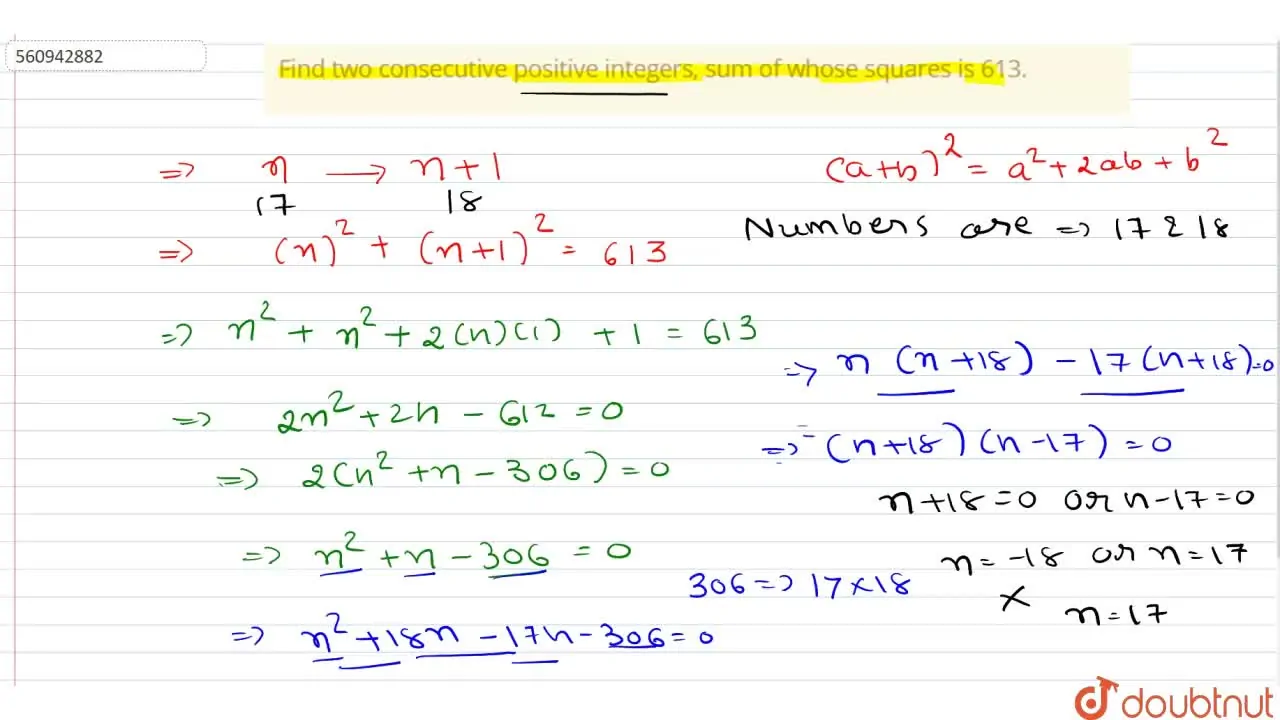 560942882
Find two consecutive positive integers, sum of whose squares is 613.
=> n → n+1
17 18
=> (n)² + (n+1)² = 613
=> n² + n² + 2(n)(1) + 1 = 613
=> 2n² + 2n - 612 = 0
=> 2(n² + n - 306) = 0
=> n² + n - 306 = 0
=> n² + 18n - 17n - 306 = 0
306 => 17 × 18
(a+b)² = a² + 2ab + b²
Numbers are => 17 & 18
=> n (n+18) - 17 (n+18) = 0
=> (n+18) (n-17) = 0
n+18 = 0 or n-17 = 0
n = -18 or n = 17
× n = 17
doubtnut